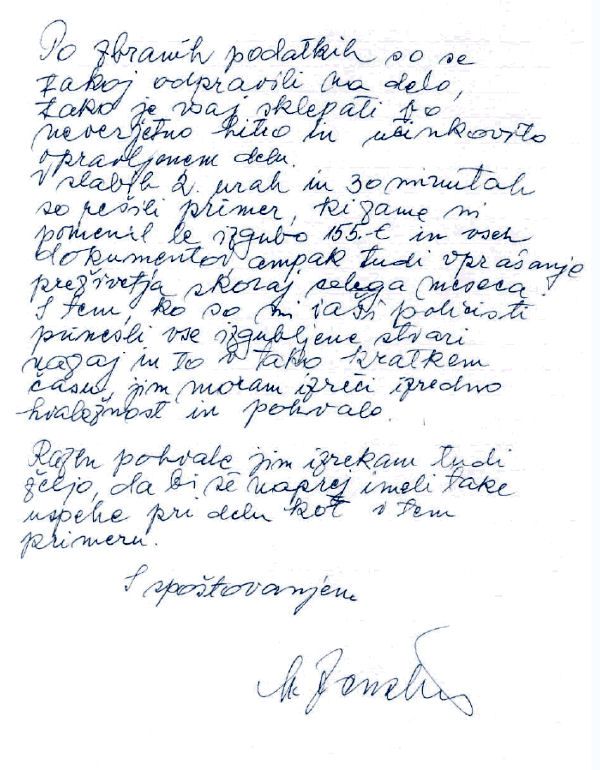 Po zbranih podatkih so se
takoj odpravili na delo,
tako je vsaj sklepati po
neverjetno hitro in učinkovito
opravljenem delu.
V slabih 2. urah in 30 minutah
so rešili primer, ki zame ni
pomenil le izgubo 155.€ in vseh
dokumentov ampak tudi vprašanje
preživetja skoraj celega meseca.
S tem, ko so mi vaši policisti
prinesli vse izgubljene stvari
nazaj in to v tako kratkem
času, jim moram izreči izredno
hvaležnost in pohvalo.
Razen pohvale jim izrekam tudi
željo, da bi še naprej imeli take
uspehe pri delu kot v tem
primeru.
S spoštovanjem